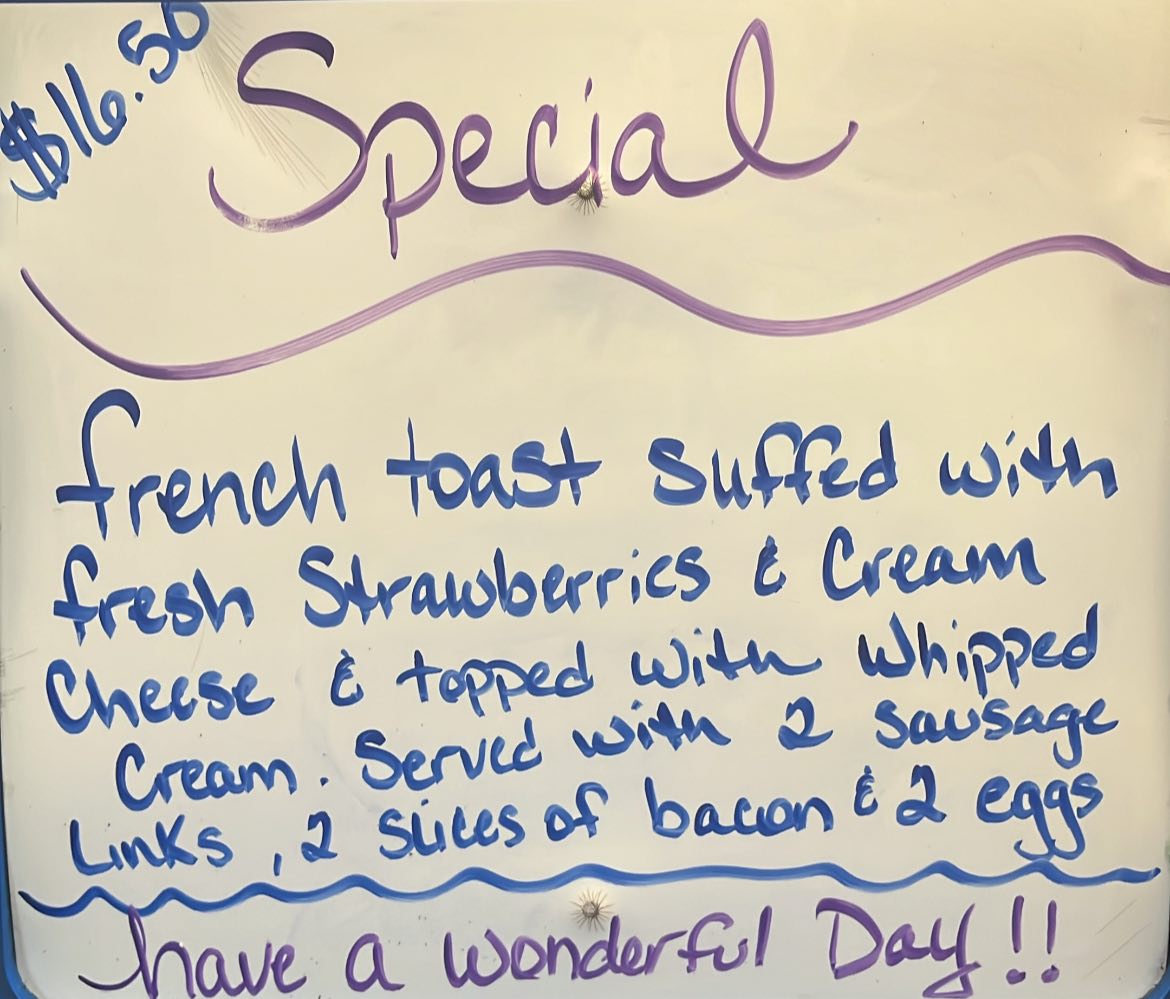 $16.50
Special
french toast suffed with
fresh Strawberries & Cream
Cheese & topped with whipped
Cream. Served with 2 sausage
Links, 2 slices of bacon & 2 eggs
have a wonderful Day!!